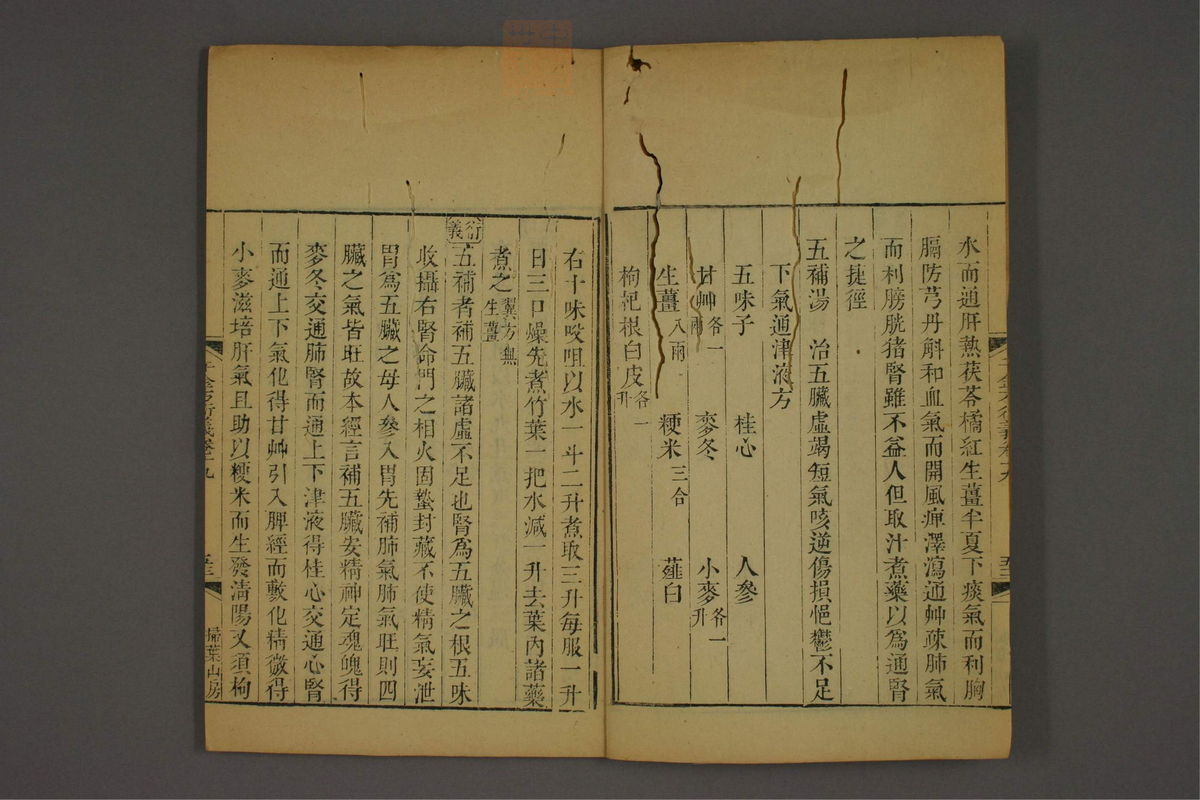 水而通肝熱茯苓橘紅生薑半夏下痰氣而利胸
膈防芎丹斛和血氣而開風痺澤瀉通艸疎肺氣
而利膀胱猪腎雖不益人但取汁煮藥以爲通腎
之捷徑
五補湯 治五臟虛竭短氣咳逆傷損悒鬱不足
下氣通津液方
五味子 桂心 人參
甘艸各一兩 麥冬 小麥各一升
生薑八兩 粳米三合 薤白
枸杞根白皮各一升
右十味㕮咀以水一斗二升煮取三升每服一升
日三口燥先煮竹葉一把水減一升去葉內諸藥
煮之翼方無生薑
衍義
五補者補五臟諸虛不足也腎爲五臟之根五味
收攝右腎命門之相火固蟄封藏不使精氣妄泄
胃爲五臟之母人參入胃先補肺氣肺氣旺則四
臟之氣皆旺故本經言補五臟安精神定魂魄得
麥冬交通肺腎而通上下津液得桂心交通心腎
而通上下氣化得甘艸引入脾經而敷化精微得
小麥滋培肝氣且助以粳米而生發淸陽又須枸
千金方衍義卷十九
至三
掃葉山房